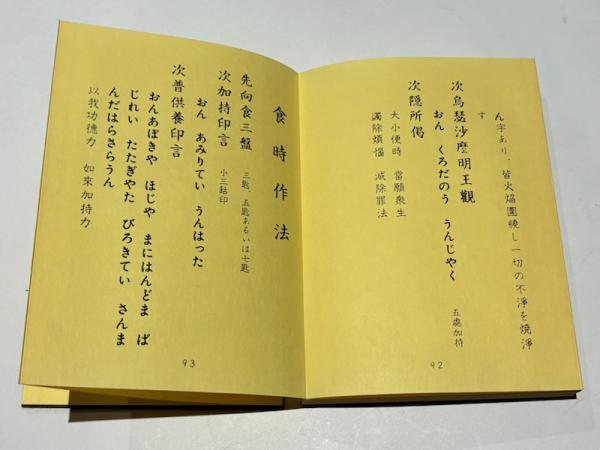 ん字あり、皆火焰圍繞し一切の不淨を燒淨
す
次烏瑟沙麽明王觀
おん　くろだのう　うんじやく　五處加持
次隠所偈
大小便時　當願衆生
蠲除煩惱　滅除罪法
92
食時作法
先向食三盤　三匙、五匙あるいは七匙
次加持印言　小三鈷印
おん　あみりてい　うんはった
次普供養印言
おんあぼきや　ほじや　まにはんどま　ば
じれい　たたぎやた　びろきてい　さんま
んだはらさらうん
以我功德力　如來加持力
93